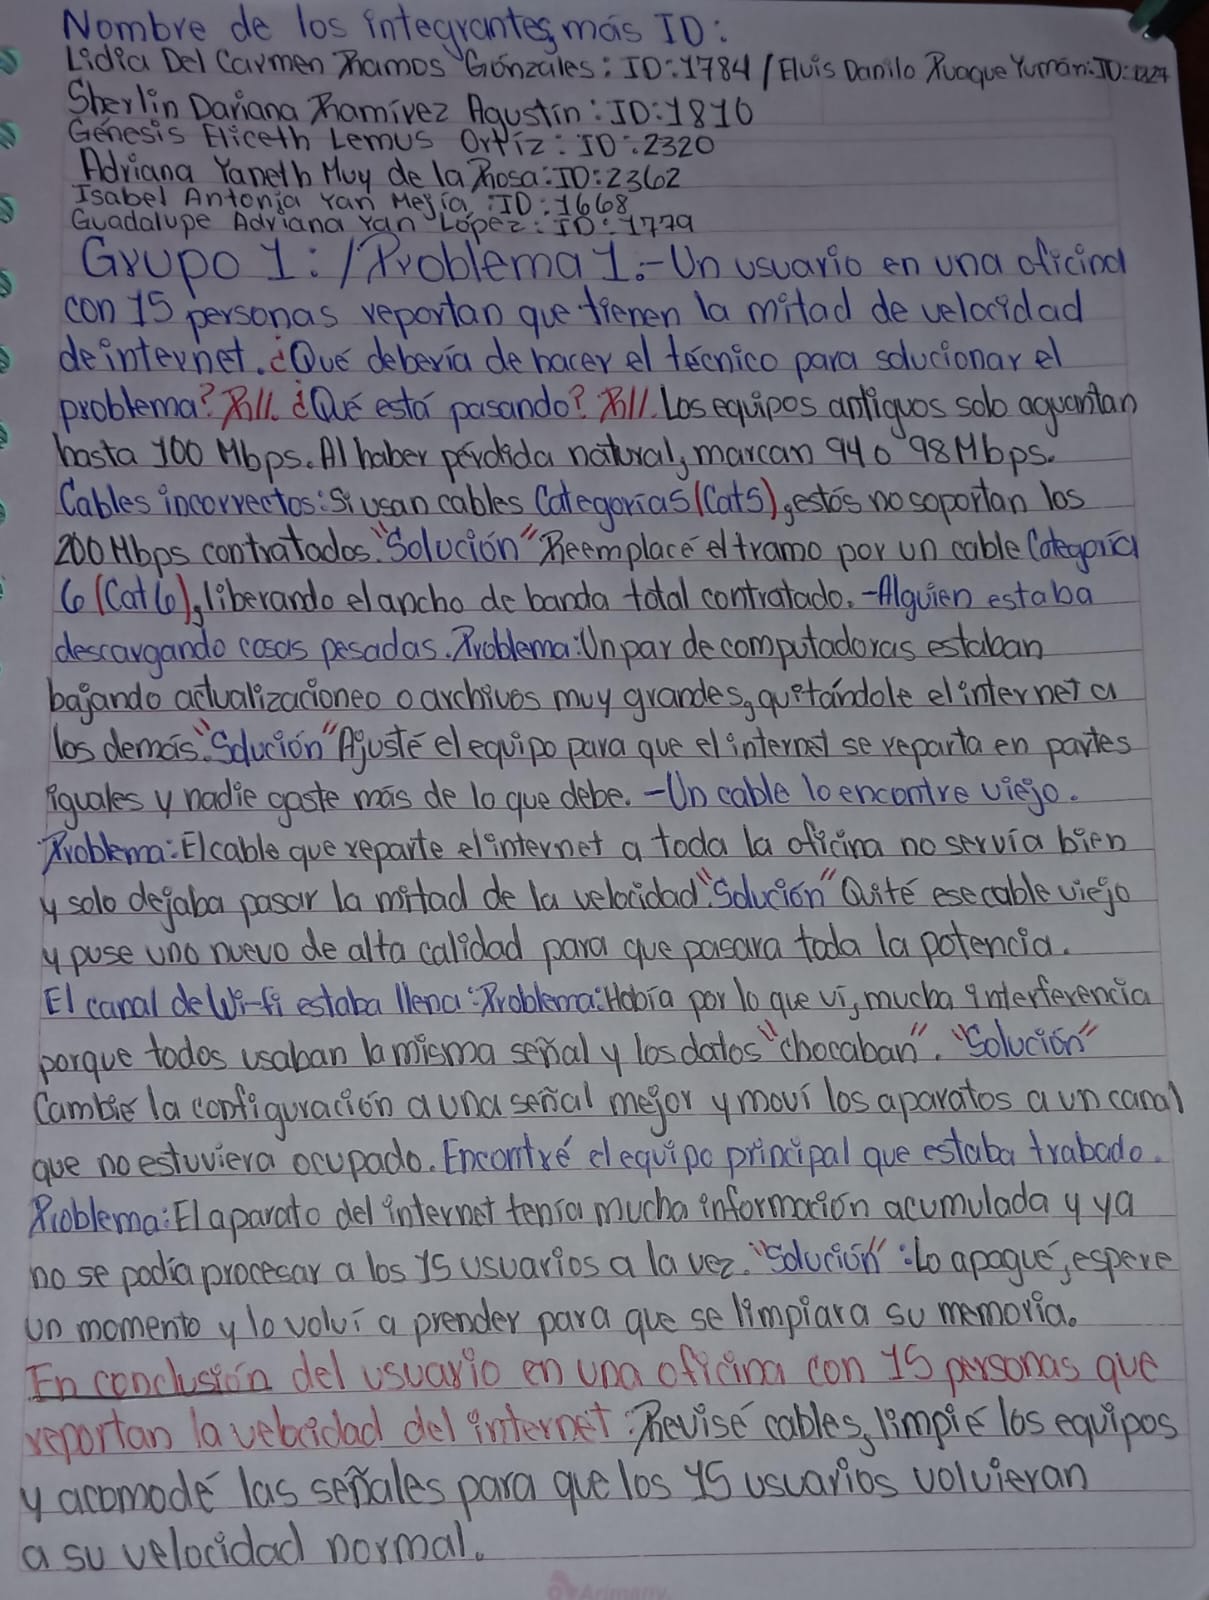 Nombre de los integrantes más ID:
Lidia Del Carmen Ramos Gónzales: ID:1784 / Eluis Danilo Ruaque Yumán: ID:
Sherlin Dariana Ramírez Agustín: ID:1810
Génesis Eliceth Lemus Ortíz: ID:2320
Adriana Yaneth Muy de la Rosa: ID:2362
Isabel Antonia Yan Mejía: ID:1668
Guadalupe Adriana Yan López: ID:1779
Grupo 1: / Problema 1.- Un usuario en una oficina
con 15 personas reportan que tienen la mitad de velocidad
de internet. ¿Qué debería de hacer el técnico para solucionar el
problema? R//. ¿Qué está pasando? R//. Los equipos antiguos solo aguantan
hasta 100 Mbps. Al haber pérdida natural, marcan 94 o 98 Mbps.
Cables incorrectos: Si usan cables Categorias (Cat5), estos no soportan los
200 Mbps contratados. "Solución" Reemplacé el tramo por un cable Categoría
6 (Cat6), liberando el ancho de banda total contratado. -Alguien estaba
descargando cosas pesadas. Problema: Un par de computadoras estaban
bajando actualizacioneo o archivos muy grandes, quitándole el internet a
los demás. "Solución" Ajusté el equipo para que el internet se reparta en partes
iguales y nadie gaste más de lo que debe. -Un cable lo encontre viejo.
Problema: El cable que reparte el internet a toda la oficina no servía bien
y solo dejaba pasar la mitad de la velocidad. "Solución" Quité ese cable viejo
y puse uno nuevo de alta calidad para que pasara toda la potencia.
El canal de Wi-fi estaba llena: Problema: Había por lo que vi, mucha interferencia
porque todos usaban la misma señal y los datos "chocaban". "Solución"
Cambié la configuración a una señal mejor y moví los aparatos a un canal
que no estuviera ocupado. Encontré el equipo principal que estaba trabado.
Problema: El aparato del internet tenía mucha información acumulada y ya
no se podía procesar a los 15 usuarios a la vez. "Solución": Lo apagué, espere
un momento y lo volví a prender para que se limpiara su memoria.
En conclusión del usuario en una oficina con 15 personas que
reportan la velocidad del internet: Revisé cables, limpié los equipos
y acomodé las señales para que los 15 usuarios volvieran
a su velocidad normal.
Arimany